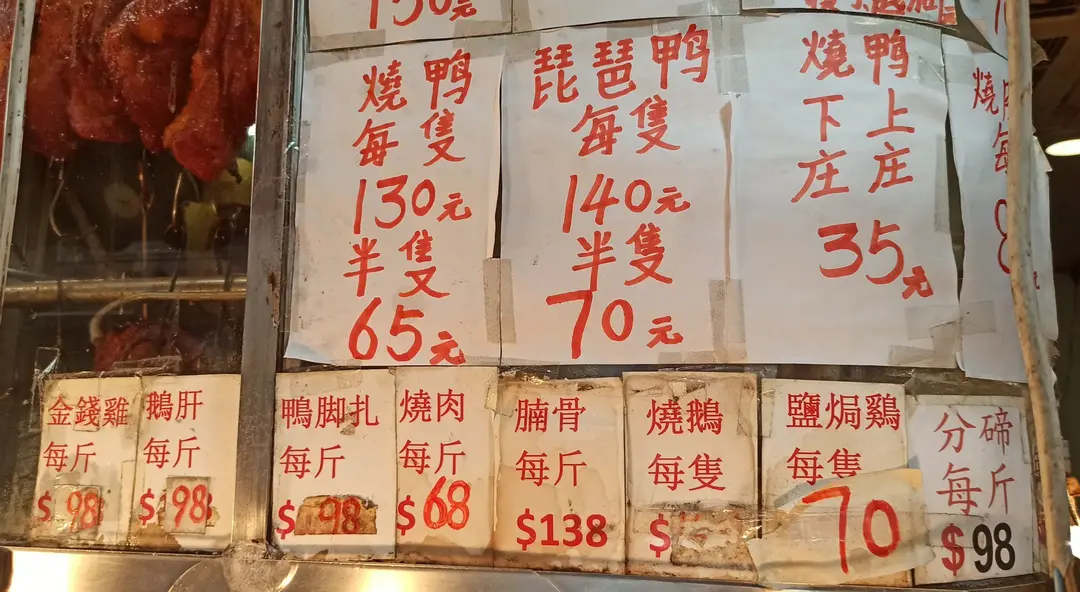 燒鴨
每隻
130元
半隻
65元
琵琶鴨
每隻
140元
半隻
70元
燒鴨
上庄
下庄
35元
燒肉
每
金錢雞
每斤
$98
鵝肝
每斤
$98
鴨脚扎
每斤
$98
燒肉
每斤
$68
腩骨
每斤
$138
燒鵝
每隻
$
鹽焗鷄
每隻
70
分碲
每斤
$98